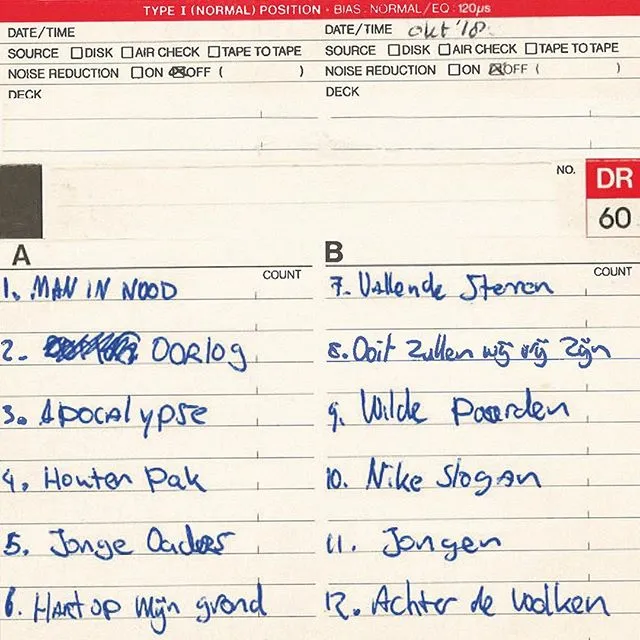 TYPE I (NORMAL) POSITION · BIAS: NORMAL/EQ: 120µs
DATE/TIME
SOURCE DISK AIR CHECK TAPE TO TAPE
NOISE REDUCTION ON OFF ( )
DECK
DATE/TIME okt '18
SOURCE DISK AIR CHECK TAPE TO TAPE
NOISE REDUCTION ON OFF ( )
DECK
NO.
DR
60
A
COUNT
1. MAN IN NOOD
2. OORLOG
3. APOCALYPSE
4. Houten Pak
5. Jonge
6. HART OP Mijn grond
B
COUNT
7. Vallende Sterren
8. Ooit Zullen wij vrij Zijn
9. Wilde Paarden
10. Nike Slogan
11. Jongen
12. Achter de Wolken